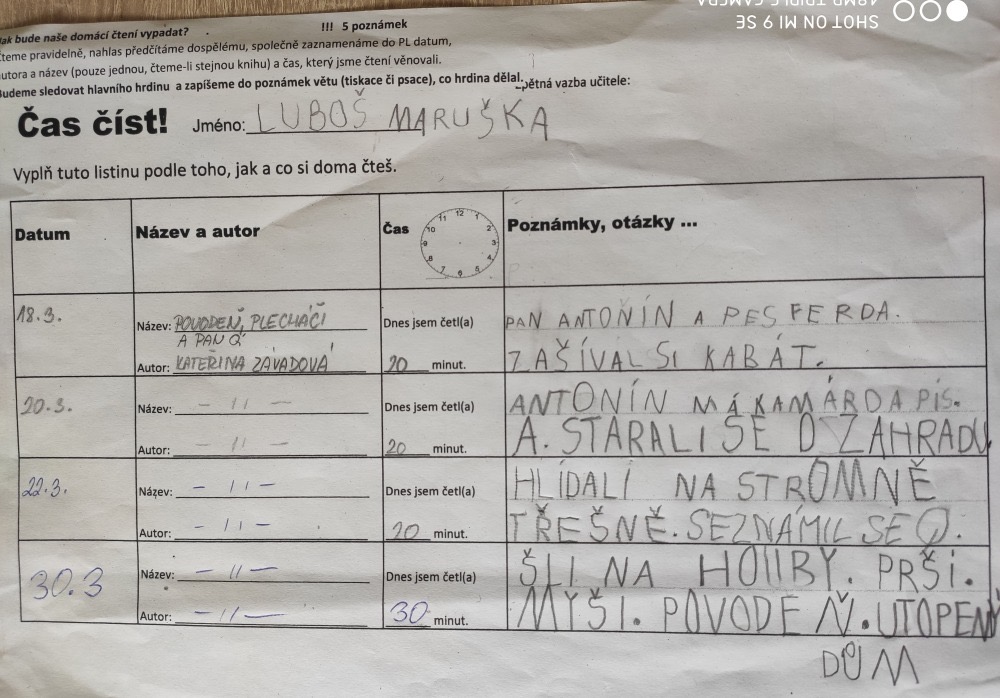 48MP TRIPLE CAMERA
SHOT ON MI 9 SE
Jak bude naše domácí čtení vypadat? !!! 5 poznámek
Čteme pravidelně, nahlas předčítáme dospělému, společně zaznamenáme do PL datum,
autora a název (pouze jednou, čteme-li stejnou knihu) a čas, který jsme čtení věnovali.
Budeme sledovat hlavního hrdinu a zapíšeme do poznámek větu (tiskace či psace), co hrdina dělal.
Zpětná vazba učitele:
Čas číst! Jméno: LUBOŠ MARUŠKA
Vyplň tuto listinu podle toho, jak a co si doma čteš.
Datum Název a autor Čas Poznámky, otázky ...
12 1 2 3 4 5 6 7 8 9 10 11
18.3. Název: POVODEŇ, PLECHÁČÍ Dnes jsem četl(a) PAN ANTONÍN A PES FERDA.
A PAN Q
Autor: KATEŘINA ZÁVADOVÁ 20 minut. ZAŠÍVAL SI KABÁT.
20.3. Název: - 11 - Dnes jsem četl(a) ANTONÍN MÁ KAMÁRDA PÍS.
Autor: - 11 - 20 minut. A. STARALI SE O ZAHRADU
22.3. Název: - 11 - Dnes jsem četl(a) HLÍDALÍ NA STROMNĚ
Autor: - 11 - 20 minut. TŘEŠNĚ. SEZNÁMIL SE Q.
30.3 Název: - 11 - Dnes jsem četl(a) ŠLI NA HOUBY. PRŠÍ.
Autor: - 11 - 30 minut. MYŠI. POVODEŇ. UTOPENÝ
DŮM